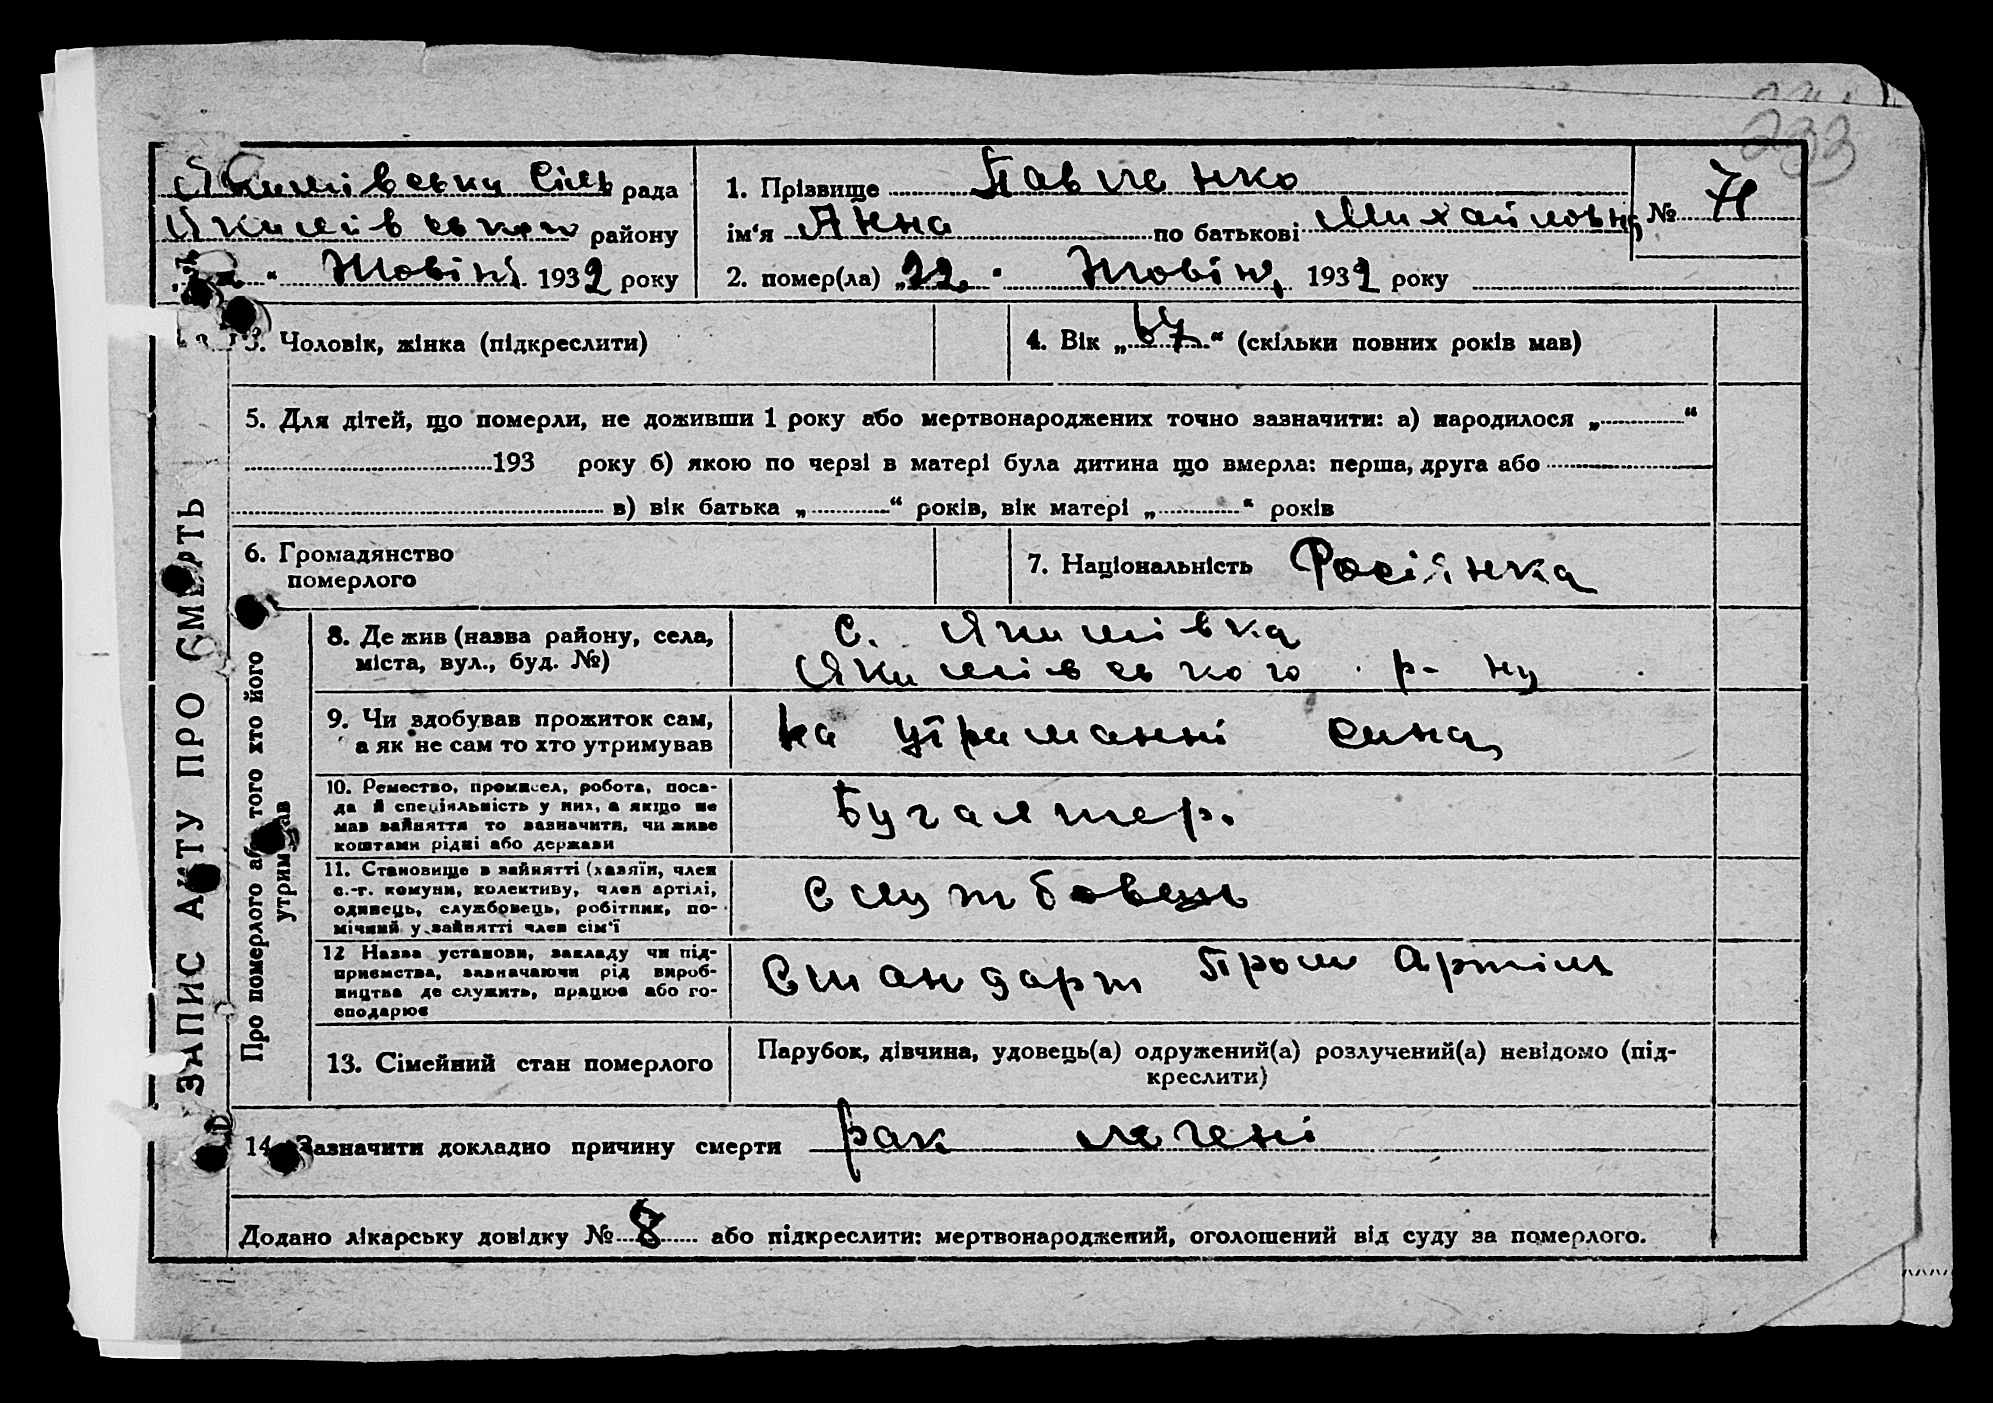 233
Якимівська Сіль рада
Якимівського району
“ Жовтня 1932 року
1. Прізвище Павленко
ім‘я Анна по батькові Михайловна
2. помер(ла) „22 “ Жовтня 1932 року
№ 71
3. Чоловік, жінка (підкреслити)
4. Вік „67“ (скільки повних років мав)
5. Для дітей, що померли, не доживши 1 року або мертвонароджених точно зазначити: а) народилося „ “
193 року б) якою по черзі в матері була дитина що вмерла: перша, друга або
в) вік батька „ “ років, вік матері „ “ років
6. Громадянство
померлого
7. Національність Росіянка
ЗАПИС АКТУ ПРО СМЕРТЬ
Про померлого або того хто його
утримував
8. Де жив (назва району, села,
міста, вул., буд. №)
с. Якимівка
Якимівського р-ну
9. Чи здобував прожиток сам,
а як не сам то хто утримував
на утриманні сина
10. Ремество, промисел, робота, поса-
да й спеціяльність у них, а якщо не
мав зайняття то зазначити, чи живе
коштами рідні або держави
Бугалтер.
11. Становище в зайнятті (хазяїн, член
с.-г. комуни, колективу, член артілі,
одинець, службовець, робітник, по-
мічний у зайнятті член сім‘ї
Службовець
12 Назва установи, закладу чи під-
приємства, зазначаючи рід вироб-
ництва де служить, працює або го-
сподарює
Стандарт Пром Артіль
13. Сімейний стан померлого
Парубок, дівчина, удовець(а) одружений(а) розлучений(а) невідомо (під-
креслити)
14. Зазначити докладно причину смерти рак печені
Додано лікарську довідку № 8 або підкреслити: мертвонароджений, оголошений від суду за померлого.